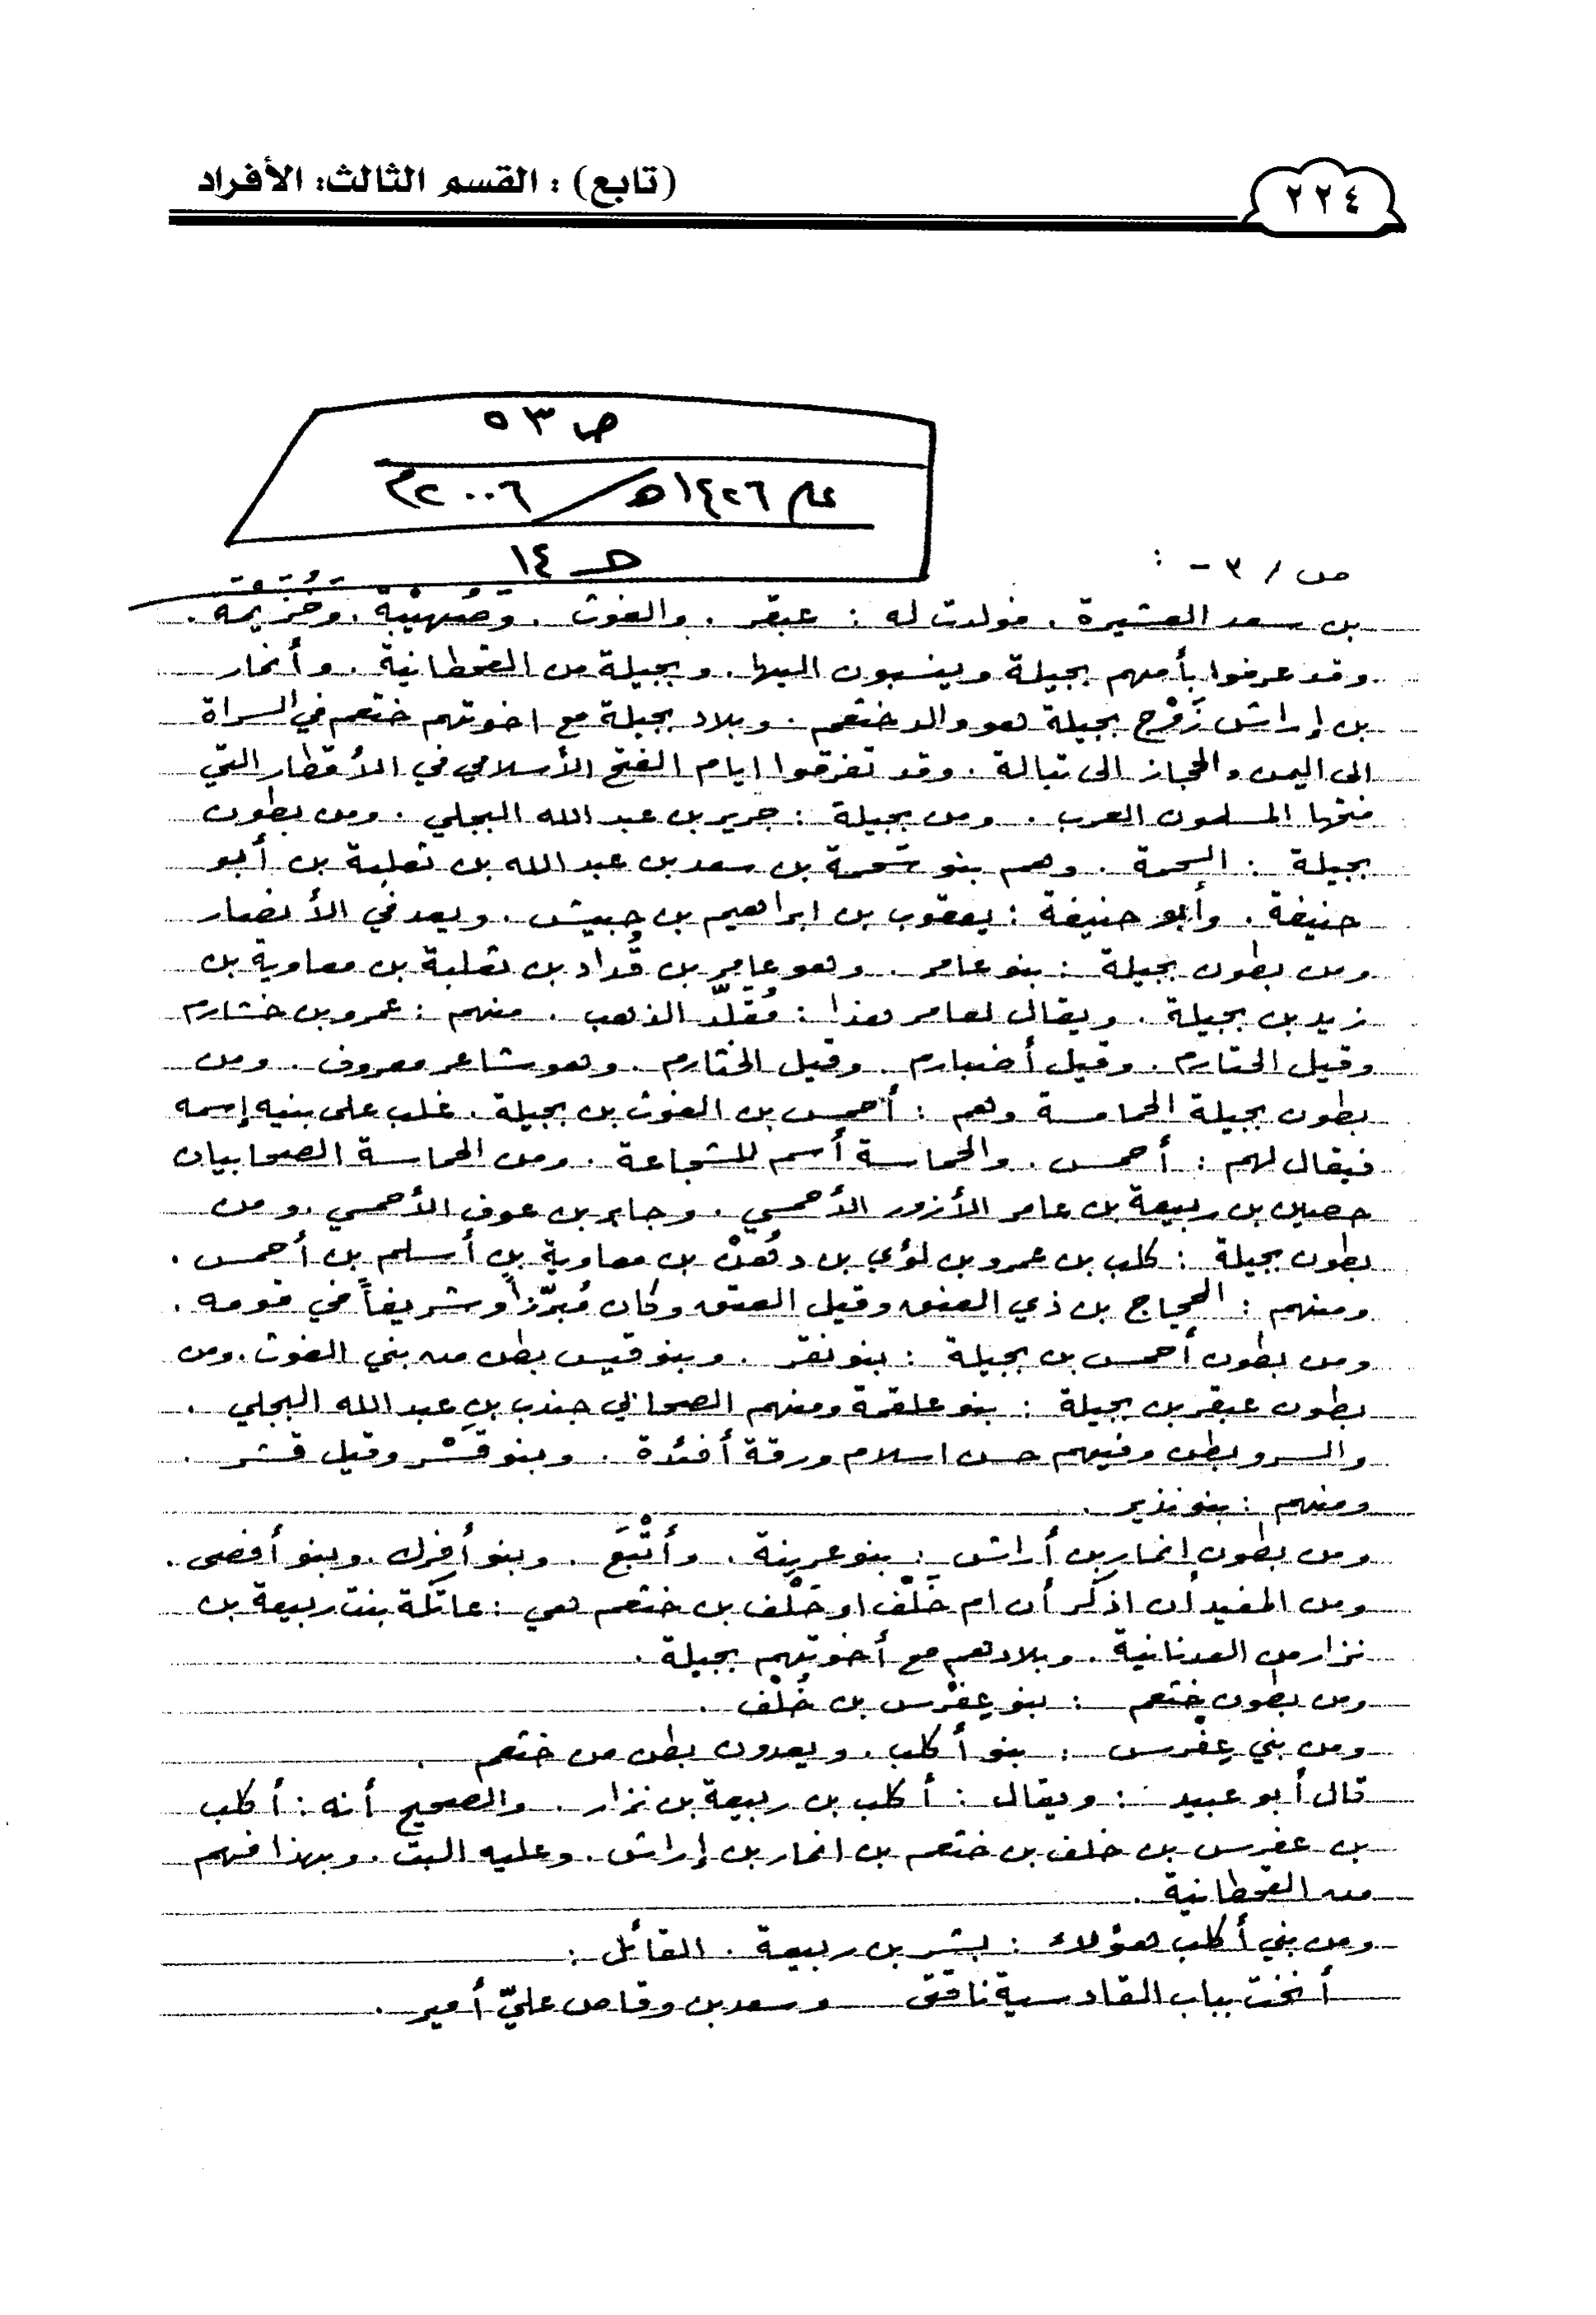 ٢٢٤
(تابع) : القسم الثالث: الأفراد
ص ٥٣
عام ١٤٢٦هـ / ٢٠٠٦م
حـ ١٤
ص / ٣ - :
بن سعد العشيرة . فولدت له : عبقر . والغوث . وصُهيْبَة . وخُزيمه .
وقد عرفوا بأمهم بجيلة وينسبون اليها . وبجيلة من القحطانية . وأنمار
بن إراش زَوْج بجيلة هو والد خثعم . وبلاد بجيلة مع اخوتهم خثعم في السراة
الى اليمن والحجاز الى تبالة . وقد تفرقوا ايام الفتح الأسلامي في الأقطار التي
فتحها المسلمون العرب . ومن بجيلة : جرير بن عبد الله البجلي . ومن بطون
بجيلة : السحمة . وهم بنو سحمة بن سعد بن عبد الله بن ثعلبة بن أبو
حنيفة . وأبو حنيفة : يعقوب بن ابراهيم بن حبيش . ويعد في الأنصار
ومن بطون بجيلة : بنو عامر . وهو عامر بن قُداد بن ثعلبة بن معاوية بن
زيد بن بجيلة . ويقال لعامر هذا : مُقلّد الذهب . منهم : عمرو بن خشارم
وقيل الحتارم . وقيل أضبارم . وقيل الخثارم . وهو شاعر معروف . ومن
بطون بجيلة الحماسة وهم : أحمس بن الغوث بن بجيلة . غلب على بنيه إسمه
فيقال لهم : أحمس . والحماسة أسم للشجاعة . ومن الحماسة الصحابيان
حصين بن ربيعة بن عامر الأزور الأحمسي . وجابر بن عوف الأحمسي . ومن
بطون بجيلة : كلب بن عمرو بن لؤي بن دُهنْ بن معاوية بن أسلم بن أحمس .
ومنهم : الحجاج بن ذي العنق وقيل العتق وكان مُبرّزاً وشريفاً في قومه .
ومن بطون أحمس بن بجيلة : بنو نفر . وبنو قيس بطن من بني الغوث . ومن
بطون عبقر بن بجيلة : بنو علقمة ومنهم الصحابي جندب بن عبد الله البجلي .
والسرو بطن وفيهم حسن اسلام ورقة أفئدة . وبنو قسْر وقيل قشر .
ومنهم : بنو نذير .
ومن بطون انمار بن أراش : بنو عرينة . وأتْبَع . وبنو أفرك . وبنو أفصى .
ومن المفيد أن اذكر أن ام خَلْف او حَلْف بن خثعم هي : عاتكة بنت ربيعة بن
نزار من العدنانية . وبلادهم مع أخوتهم بجيلة .
ومن بطون خثعم : بنو عِفْرس بن خُلْف .
ومن بني عِفْرس : بنو أكلب . ويعدون بطن من خثعم .
قال أبو عبيد : ويقال : أكلب بن ربيعة بن نزار . والصحيح أنه : أكلب
بن عفرس بن خلف بن خثعم بن انمار بن إراش . وعليه البتّ . وبهذا فهم
من القحطانية .
ومن بني أكلب هؤلاء : بشر بن ربيعة . القائل :
أنخت بباب القادسية ناقتى وسعد بن وقاص عليّ أمير .